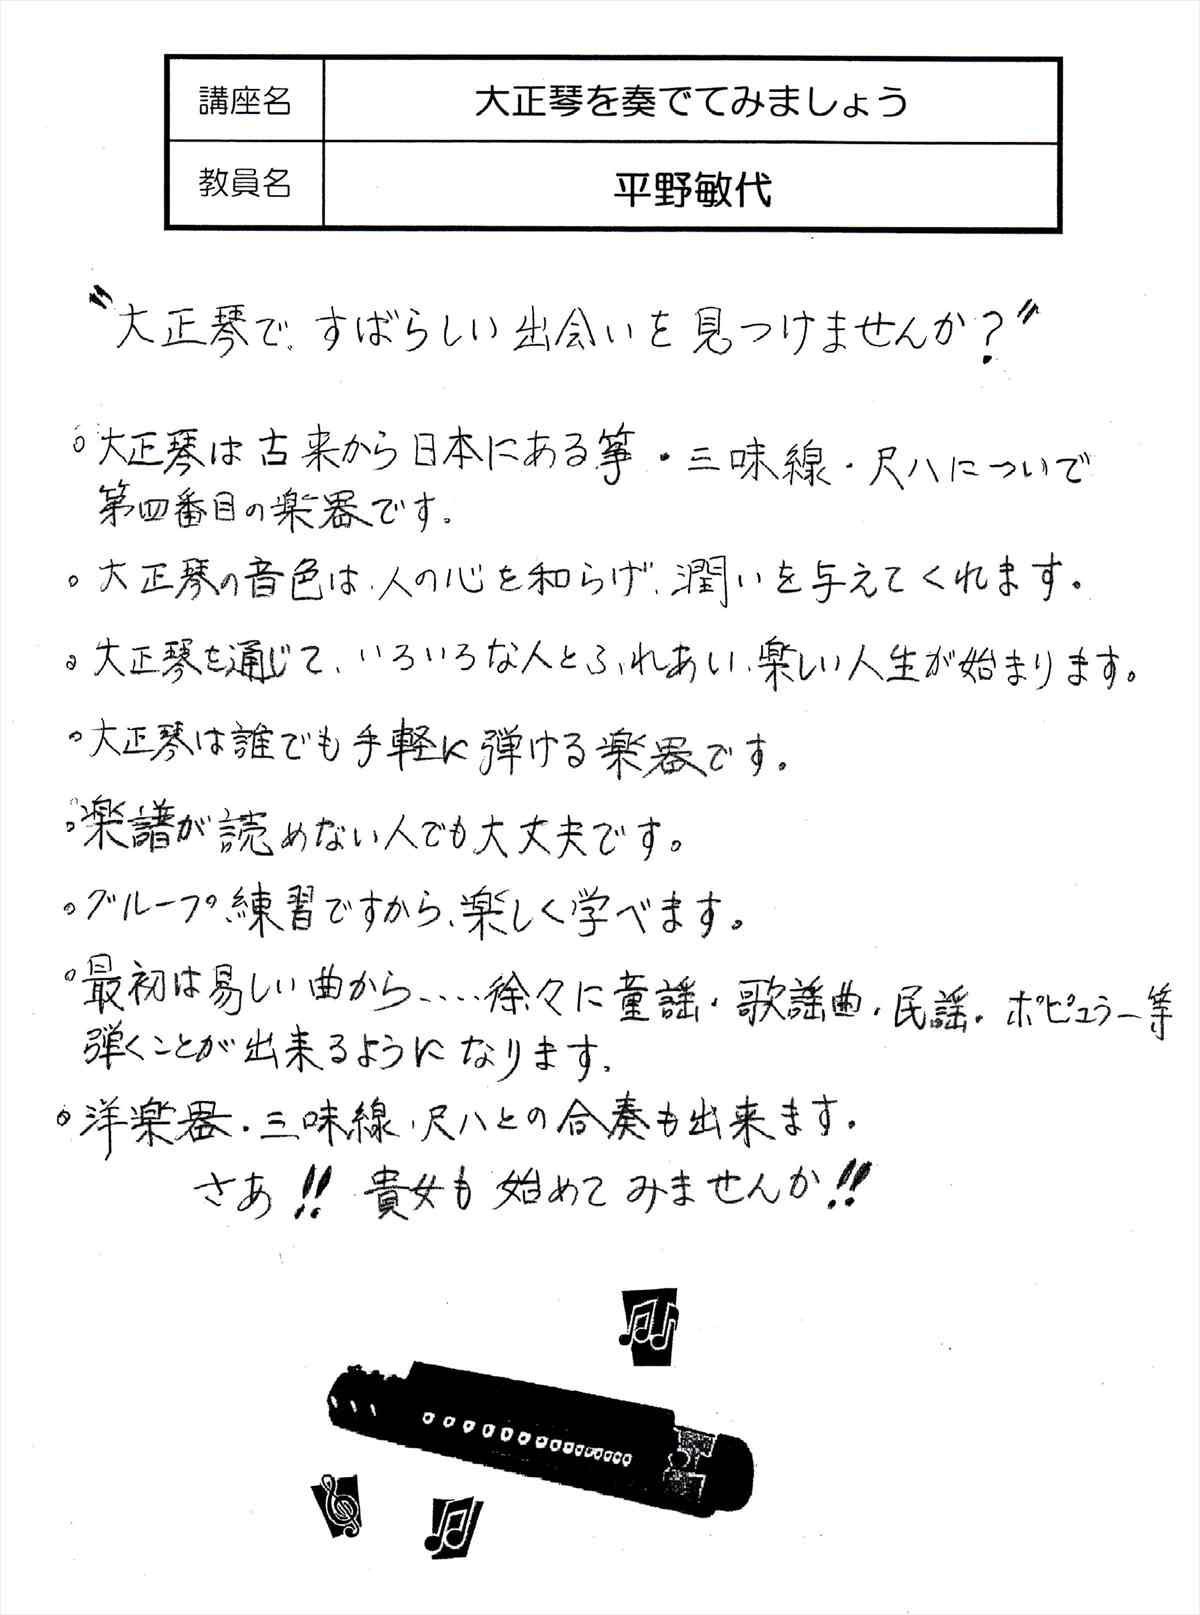 講座名 大正琴を奏でてみましょう
教員名 平野敏代
"大正琴で、すばらしい出会いを見つけませんか?"
○大正琴は古来から日本にある筝・三味線・尺八についで
第四番目の楽器です。
○大正琴の音色は、人の心を和らげ、潤いを与えてくれます。
○大正琴を通じて、いろいろな人とふれあい、楽しい人生が始まります。
○大正琴は誰でも手軽に弾ける楽器です。
○楽譜が読めない人でも大丈夫です。
○グループ練習ですから、楽しく学べます。
○最初は易しい曲から....徐々に童謡・歌謡曲・民謡・ポピュラー等
弾くことが出来るようになります。
○洋楽器・三味線・尺八との合奏も出来ます。
さあ!! 貴女も始めてみませんか!!